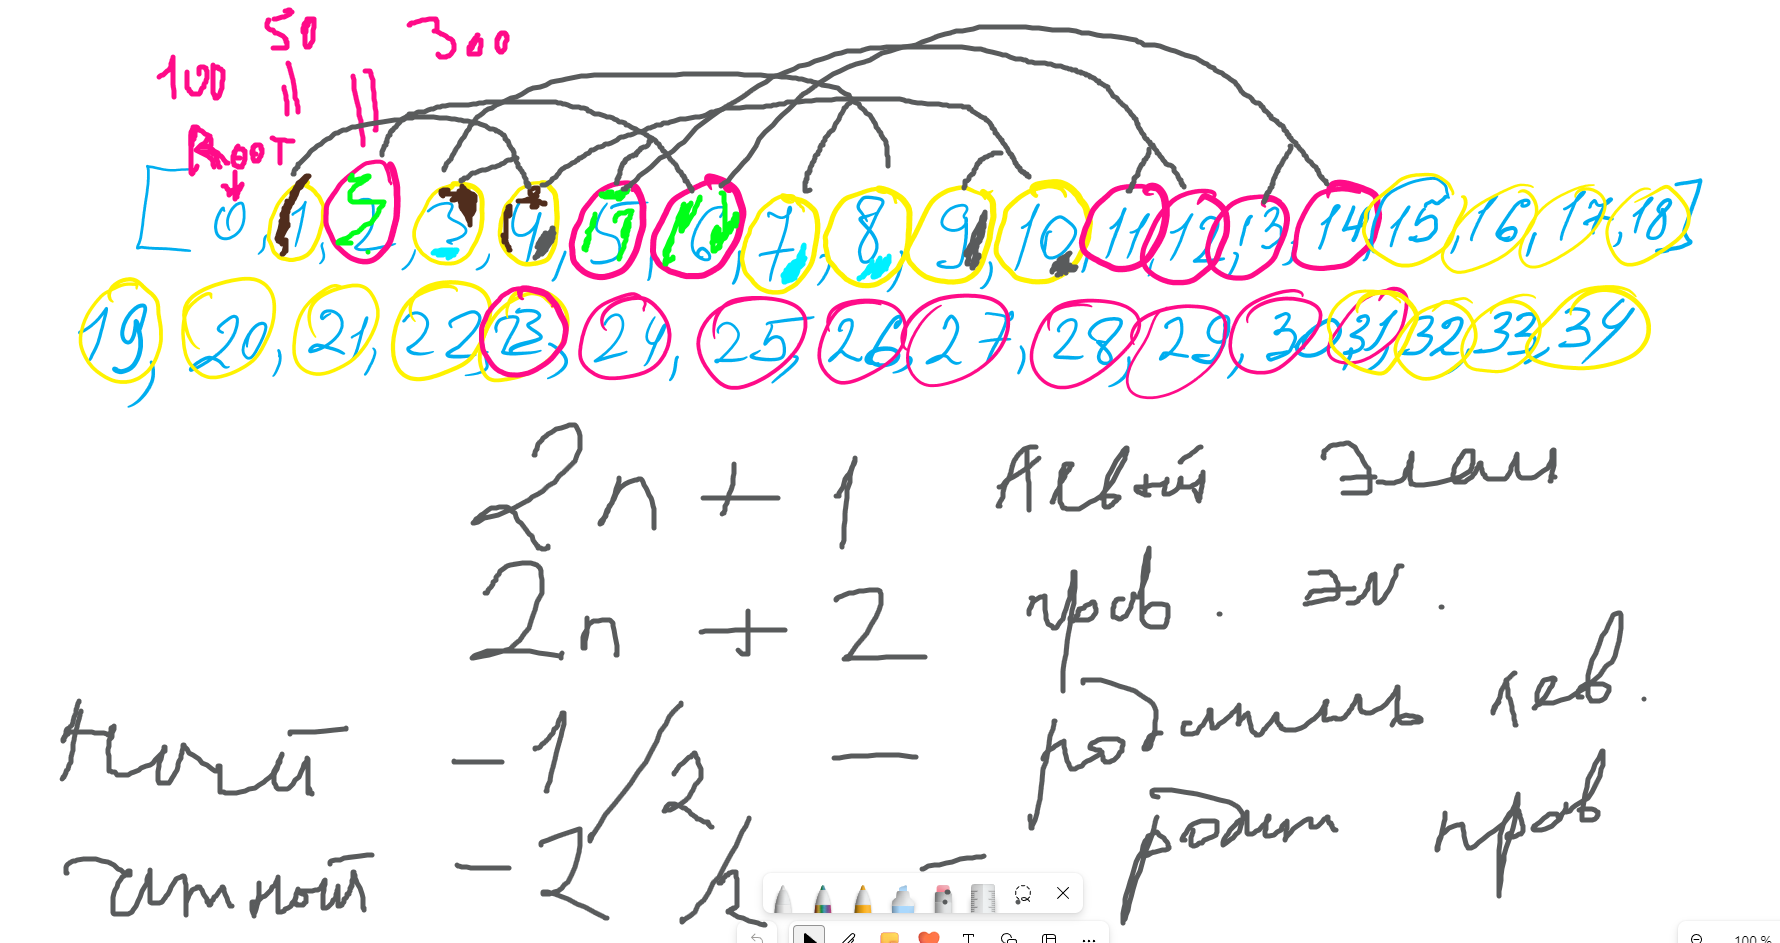 50 300
100
Root
[ 0, 1, 2, 3, 4, 5, 6, 7, 8, 9, 10, 11, 12, 13, 14, 15, 16, 17, 18]
19, 20, 21, 22, 23, 24, 25, 26, 27, 28, 29, 30, 31, 32, 33, 34
2n + 1 левый элем
2n + 2 прав. эл.
-1/2 — родитель лев.
-2/2 — родит прав
100 %